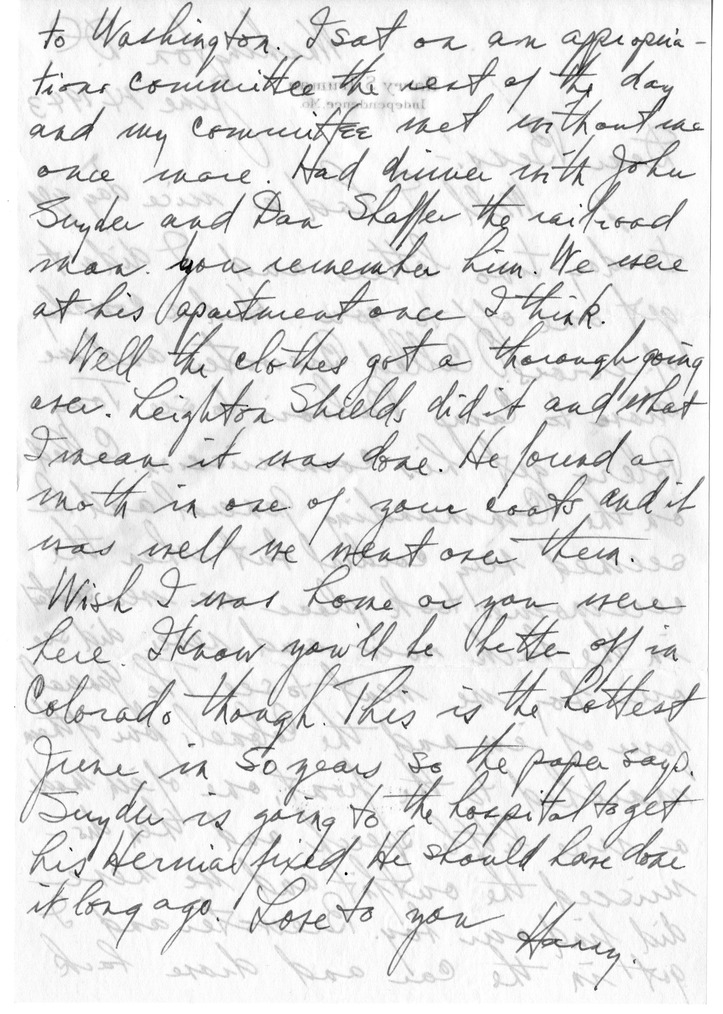 to Washington. I sat on an appropria-
tions committee the rest of the day
and my committee met without me
once more. Had dinner with John
Snyder and Dan Shaffer the railroad
man. You remember him. We were
at his apartment once I think.
Well the clothes got a thorough going
over. Leighton Shields did it and what
I mean it was done. He found a
moth in one of your coats and it
was well we went over them.
Wish I was home or you were
here. I know you'll be better off in
Colorado though. This is the hottest
June in 50 years so the paper says.
Snyder is going to the hospital to get
his Hernia fixed. He should have done
it long ago. Love to you
Harry.